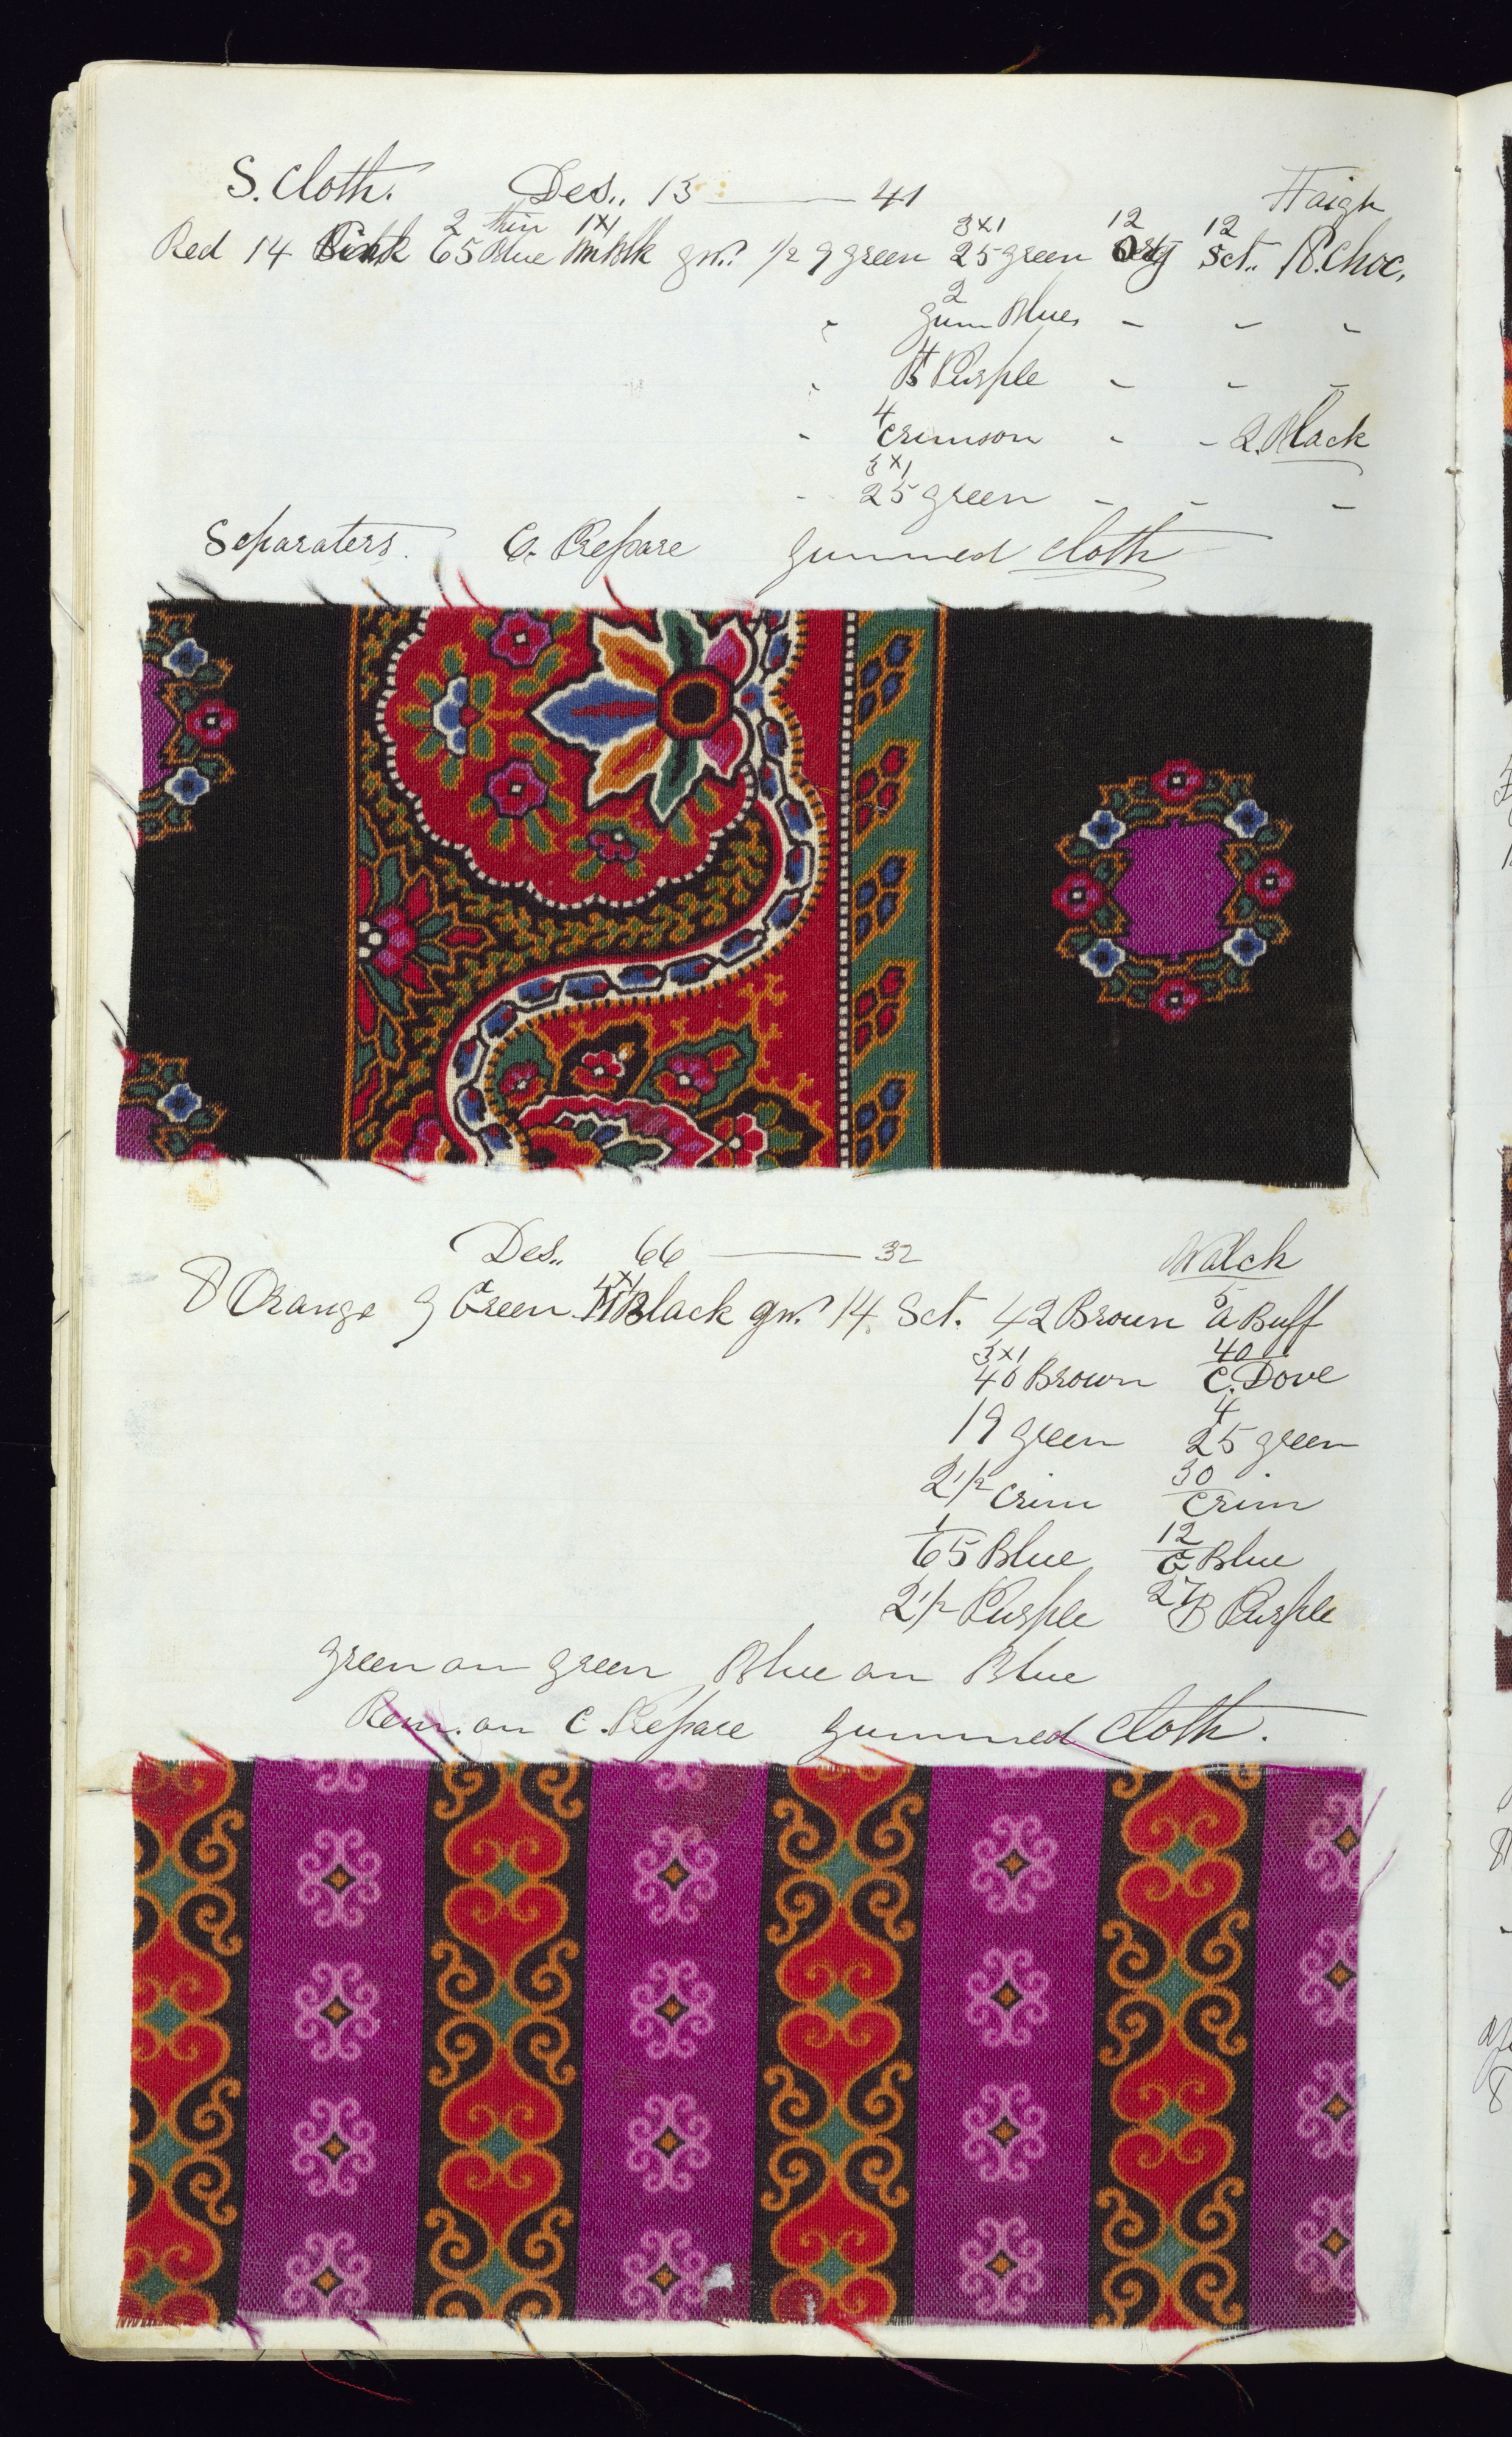 S. Cloth. Des.. 13 — 41 Haigh
2 thin 1x1 3x1 12 12
Red 14 65 Blue Blk gw.? 1/2 9 green 25 green Sct.. 18. Choc,
2
" gum Blue, - - -
4
" B Purple - - -
4
- Crimson - - 2. Black
3x1
- 25 green - - -
Separaters. C. Prepare gummed cloth
Des.. 66 — 32 Walch
4x1 5
8 Orange 9 Green M Black gw.? 14 Sct. 42 Brown a Buff
3x1 40
40 Brown C. Dove
4
19 green 25 green
30
2 1/2 Crim Crim
1 12
65 Blue, C Blue
2 1/2 Purple 27 B Purple
green on green Blue on Blue
Rem. on C. Prepare gummed cloth.